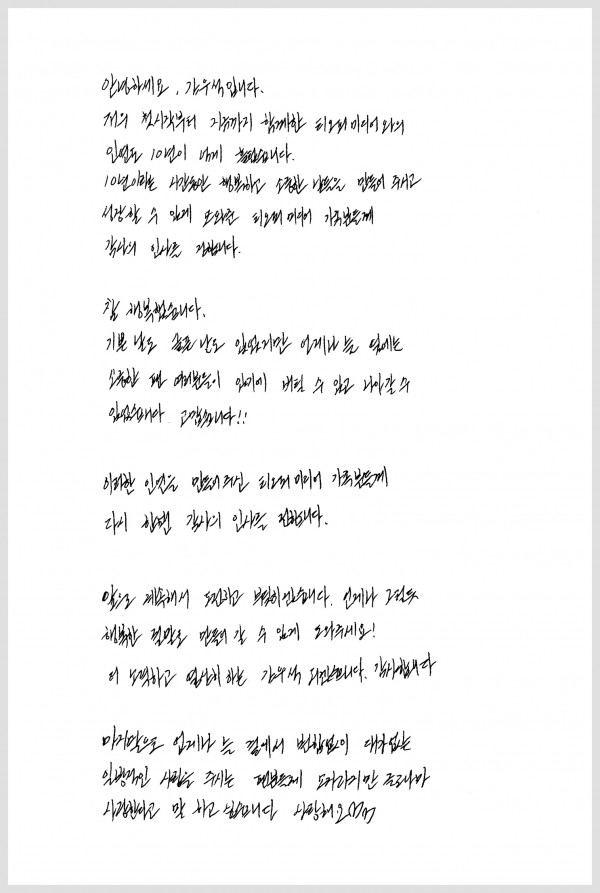 안녕하세요, 강우석입니다.
저의 첫시작부터 지금까지 함께한 티오피미디어와의
인연도 10년이 넘게 흘렀습니다.
10년이라는 시간동안 행복하고 소중한 날들을 만들어 주시고
성장할 수 있게 도와준 티오피미디어 가족분들께
감사의 인사를 전합니다.
참 행복했습니다.
기쁜날도 슬픈날도 있었지만 언제나 늘 옆에는
소중한 팬 여러분들이 있기에 버틸 수 있고 나아갈 수
있었습니다. 고맙습니다!!
이러한 인연을 만들어주신 티오피미디어 가족분들께
다시 한번 감사의 인사를 전합니다.
앞으로 계속해서 도전하고 부딪히겠습니다. 언제나 그렇듯
행복한 결말로 만들어 갈 수 있게 도와주세요!
더 노력하고 열심히 하는 강우석 되겠습니다. 감사합니다
마지막으로 언제나 늘 곁에서 변함없이 대가없는
일방적인 사랑을 주시는 팬분들께 모자라지만
사랑한다고 말 하고 싶습니다 사랑해요